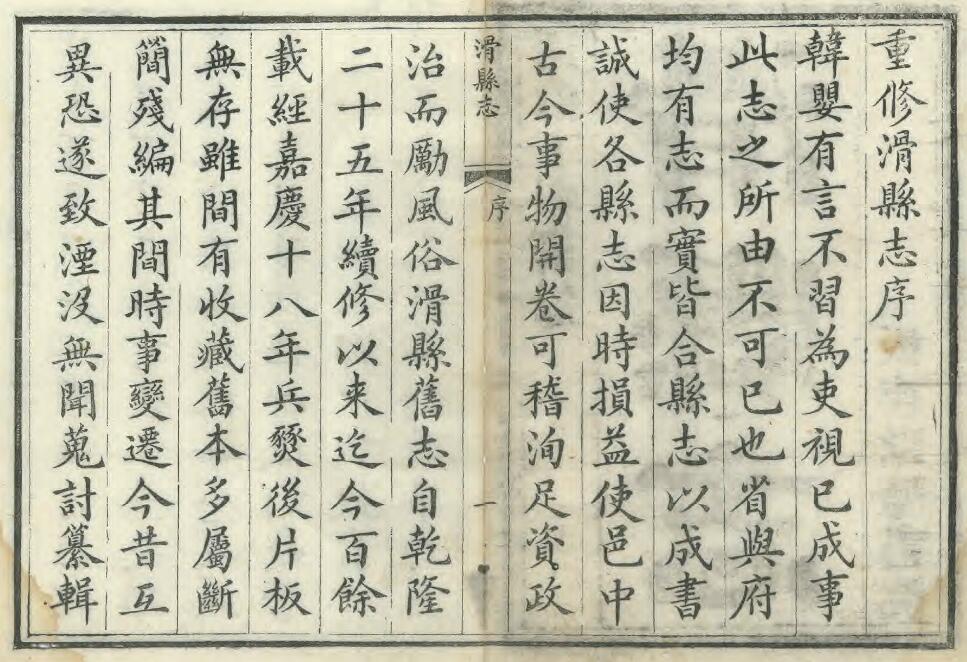 重修滑縣志序
韓嬰有言不習為吏視已成事
此志之所由不可已也省與府
均有志而實皆合縣志以成書
誠使各縣志因時損益使邑中
古今事物開卷可稽洵足資政
滑縣志
序
一
治而勵風俗滑縣舊志自乾隆
二十五年續修以来迄今百餘
載經嘉慶十八年兵燹後片板
無存雖間有收藏舊本多屬斷
簡殘編其間時事變遷今昔互
異恐遂致湮沒無聞蒐討纂輯